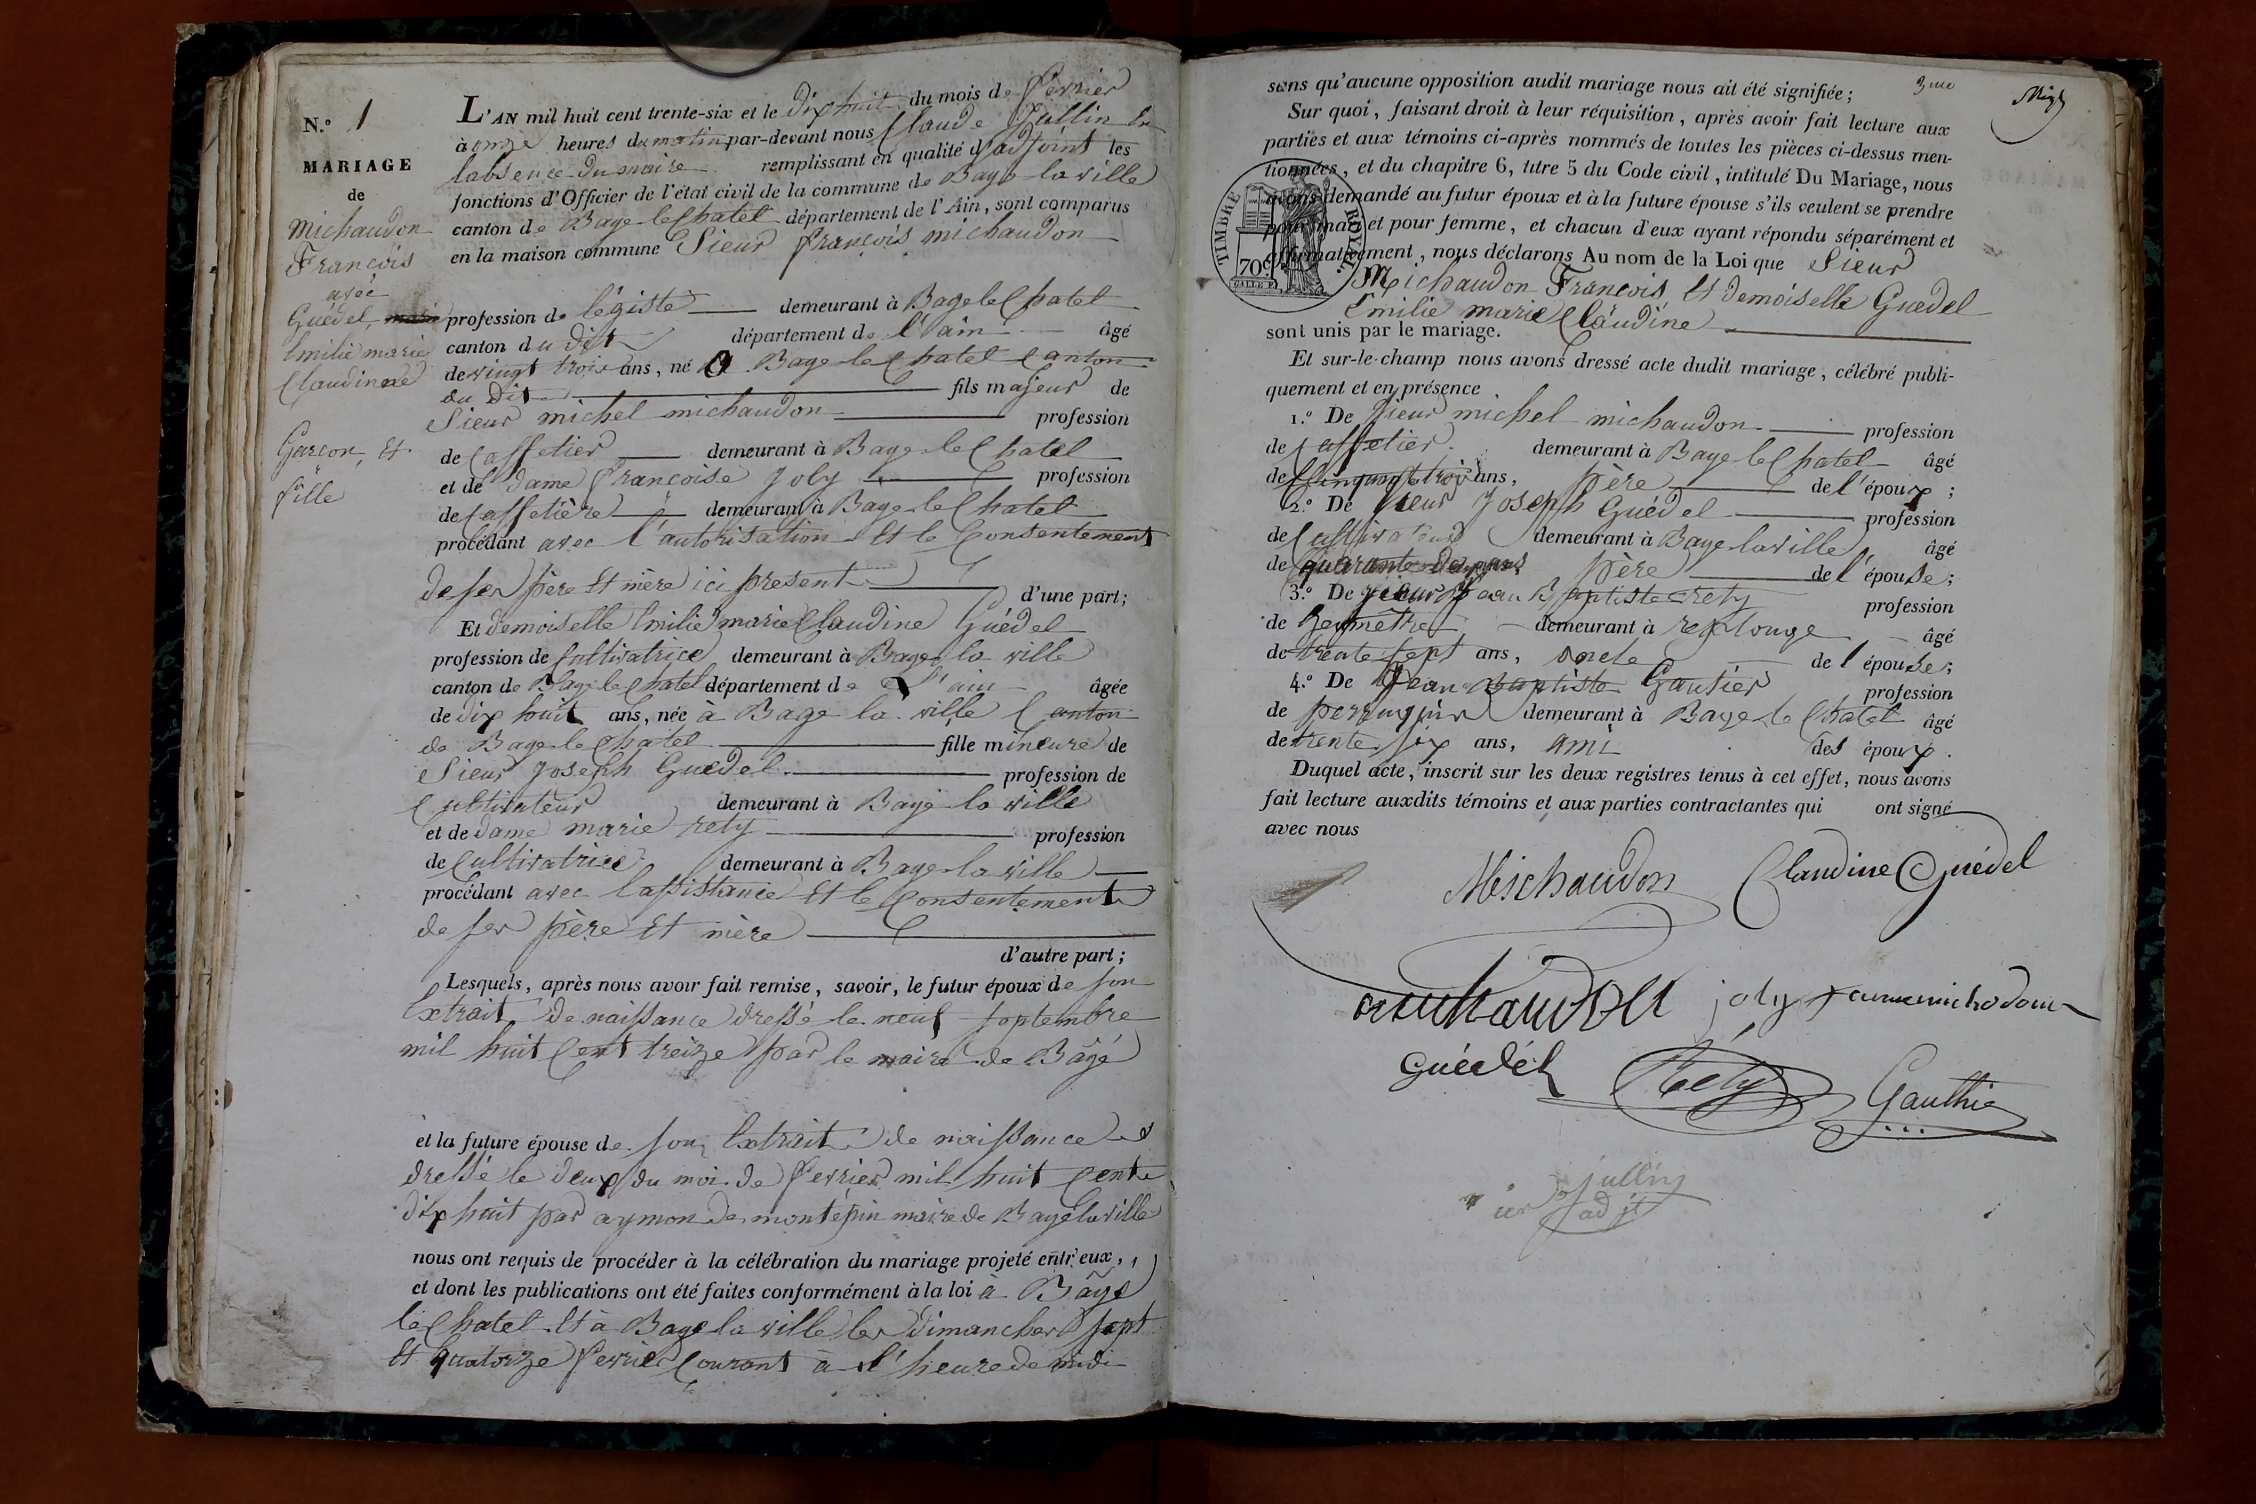 N.º 1
MARIAGE
de
Michaudon
François
avec
Guédel,
Emilie marie
Claudine
Garçon, et
fille
L'AN mil huit cent trente-six et le dix huit du mois de fevrier
à onze heures du matin par-devant nous Claude Jullin en
labsence du maire remplissant en qualité d'adjoint les
fonctions d'Officier de l'état civil de la commune de Bagé la ville
canton de Bage le Chatel département de l'Ain, sont comparus
en la maison commune Sieur françois michaudon
profession de légiste demeurant à Bage le Chatel
canton du dit département de l'ain âgé
de vingt trois ans, né à Bage le Chatel Canton
du dit fils majeur de
Sieur michel michaudon profession
de Caffetier demeurant à Bage le Chatel
et de dame françoise Joly profession
de Caffetière demeurant à Bage le Chatel
procédant avec l'autorisation et le Consentement
de ses père et mère ici present d'une part;
Et demoiselle Emilie marie Claudine Guédel
profession de Cultivatrice demeurant à Bage la ville
canton de Bage le Chatel département de l'ain âgée
de dix huit ans, née à Bage la ville Canton
de Bage le Chatel fille mineure de
Sieur Joseph Guedel profession de
Cultivateur demeurant à Bagé la ville
et de dame marie rety profession
de Cultivatrice demeurant à Bage la ville
procédant avec lassistance et le Consentement
de ses père et mère
d'autre part;
Lesquels, après nous avoir fait remise, savoir, le futur époux de son
Extrait de naissance dressé le neuf septembre
mil huit Cent treize par le maire de Bâgé
et la future épouse de son Extrait de naissance
dressé le deux du moi de fevrier mil huit Cent
dix huit par aymon de montépin maire de Bagé la ville
nous ont requis de procéder à la célébration du mariage projeté entr'eux,
et dont les publications ont été faites conformément à la loi à Bâgé
le Chatel et à Bage la ville les dimanches sept
et quatorze fevrier Courant à l'heure de midi
3me
sans qu'aucune opposition audit mariage nous ait été signifiée;
Sur quoi, faisant droit à leur réquisition, après avoir fait lecture aux
parties et aux témoins ci-après nommés de toutes les pièces ci-dessus men-
tionnées, et du chapitre 6, titre 5 du Code civil, intitulé Du Mariage, nous
avons demandé au futur époux et à la future épouse s'ils veulent se prendre
pour mari et pour femme, et chacun d'eux ayant répondu séparément et
affirmativement, nous déclarons Au nom de la Loi que Sieur
Michaudon François et demoiselle Guedel
Emilie marie Claudine
sont unis par le mariage.
TIMBRE ROYAL.
70c
Et sur-le-champ nous avons dressé acte dudit mariage, célébré publi-
quement et en présence
1.º De Sieur michel michaudon profession
de Caffetier demeurant à Bage le Chatel âgé
de Cinquante trois ans, père de l'époux;
2.º De Sieur Joseph Guédel profession
de Cultivateur demeurant à Bage la ville âgé
de quarante ans père de l'épouse;
3.º De Sieur Jean Baptiste rety profession
de Geomètre demeurant à replonge âgé
de trente sept ans, oncle de l'épouse;
4.º De Jean Baptiste Gautier profession
de perruquier demeurant à Bage le Chatel âgé
de trente six ans, ami des époux.
Duquel acte, inscrit sur les deux registres tenus à cet effet, nous avons
fait lecture auxdits témoins et aux parties contractantes qui ont signé
avec nous
Mischaudon Claudine Guédel
michaudon joly femme michodon
Guédél Réty Gauthier
jullin
adjt